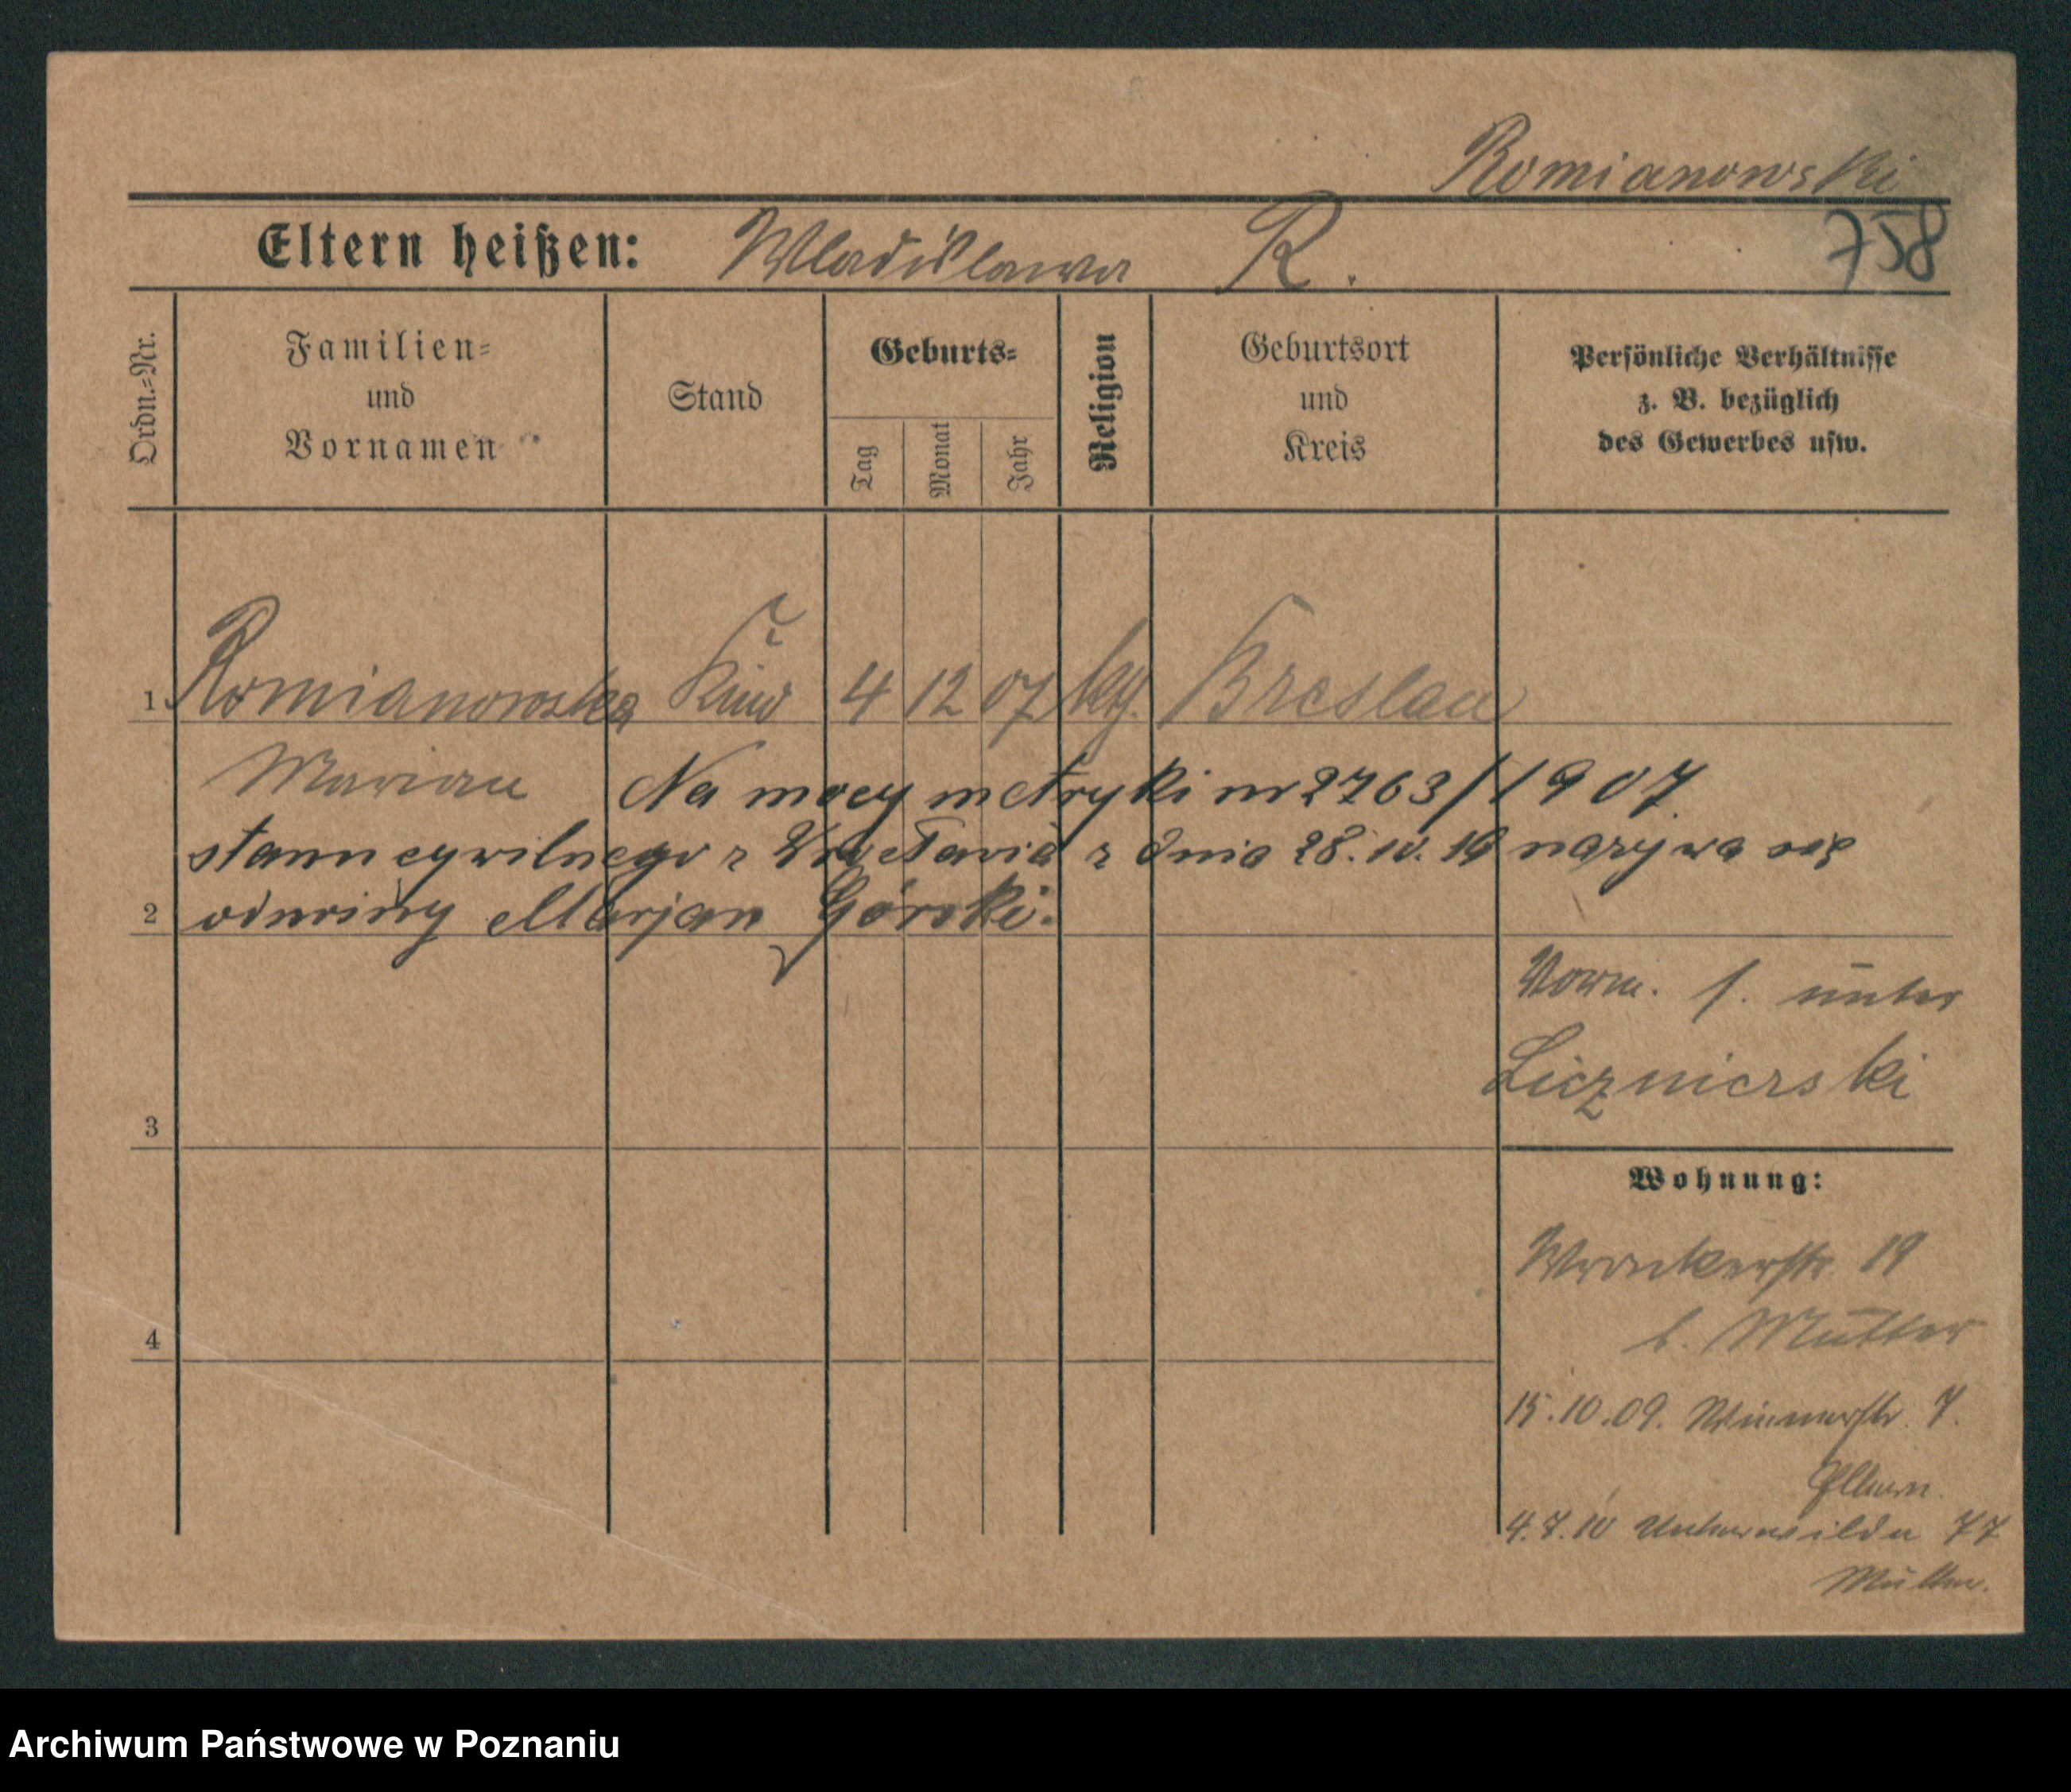 Romianowski
758
Eltern heißen: Wladislawa R.
Ordn.=Nr.
Familien=
und
Vornamen
Stand
Geburts=
Tag
Monat
Jahr
Religion
Geburtsort
und
Kreis
Persönliche Verhältnisse
z. B. bezüglich
des Gewerbes usw.
1 Romianowska Kind 4 12 07 kg. Breslau
Marian Na mocy metryki nr 2763/1907
stanu cywilnego z z dnia 28. 10. 19 nazywa się
2 odnośny Marjan Górski.
Vorm. f. unter
Licznierski
3
Wohnung:
Wronkerstr. 19
b. Mutter
4
15.10.09. 7.
Eltern.
4.7.10 Unterwilda 77
Mutter.
Archiwum Państwowe w Poznaniu